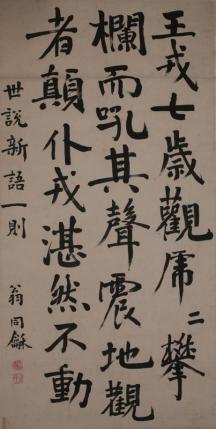 王戎七歲觀虎二攀
欄而吼其聲震地觀
者顛仆戎湛然不動
世說新語一則
翁同龢